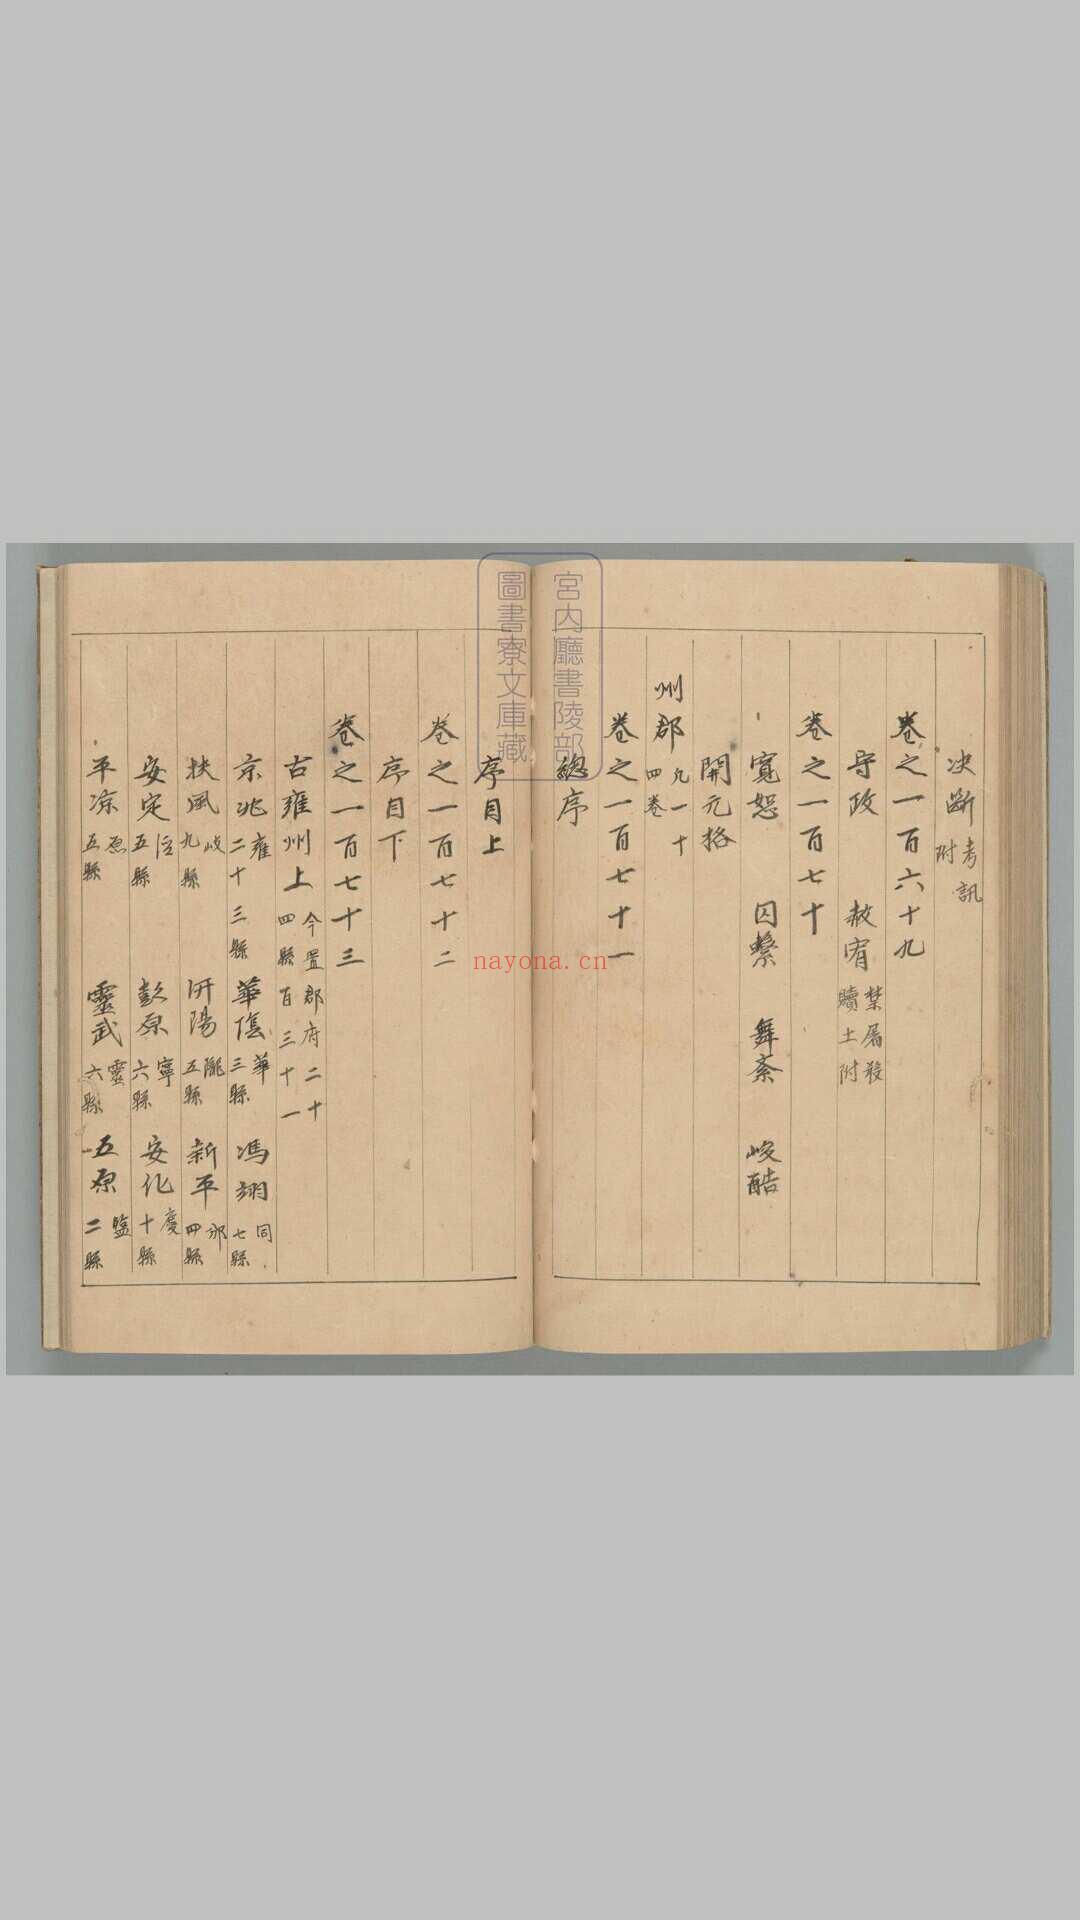 决斷 考訊附
卷之一百六十九
守政 赦宥 禁屠殺贖土附
卷之一百七十
寬恕 囚繫 舞紊 峻酷
開元格
州郡 凡一十四卷
卷之一百七十一
總序
序目上
卷之一百七十二
序目下
卷之一百七十三
古雍州上 今置郡府二十四縣百三十一
京兆 雍二十三縣 華陰 華三縣 馮翊 同七縣
扶風 岐九縣 汧陽 隴五縣 新平 邠四縣
安定 涇五縣 彭原 寧六縣 安化 慶十縣
平凉 原五縣 靈武 靈六縣 五原 鹽二縣
宮内廳書陵部
圖書寮文庫藏
nayona.cn